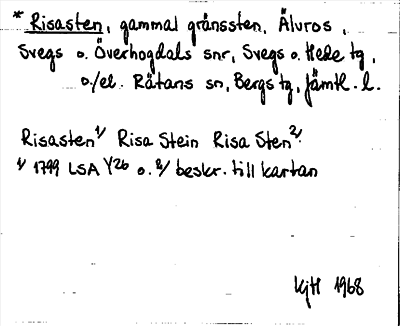 * Risasten, gammal gränssten, Älvros,
Svegs o. Överhogdals snr, Svegs o. Hede tg,
o./el. Rätans sn, Bergs tg, Jämtl. l.
Risasten 1/ Risa Stein Risa Sten 2/.
1/ 1799 LSA Y26 o. 2/ beskr. till kartan
KjH 1968